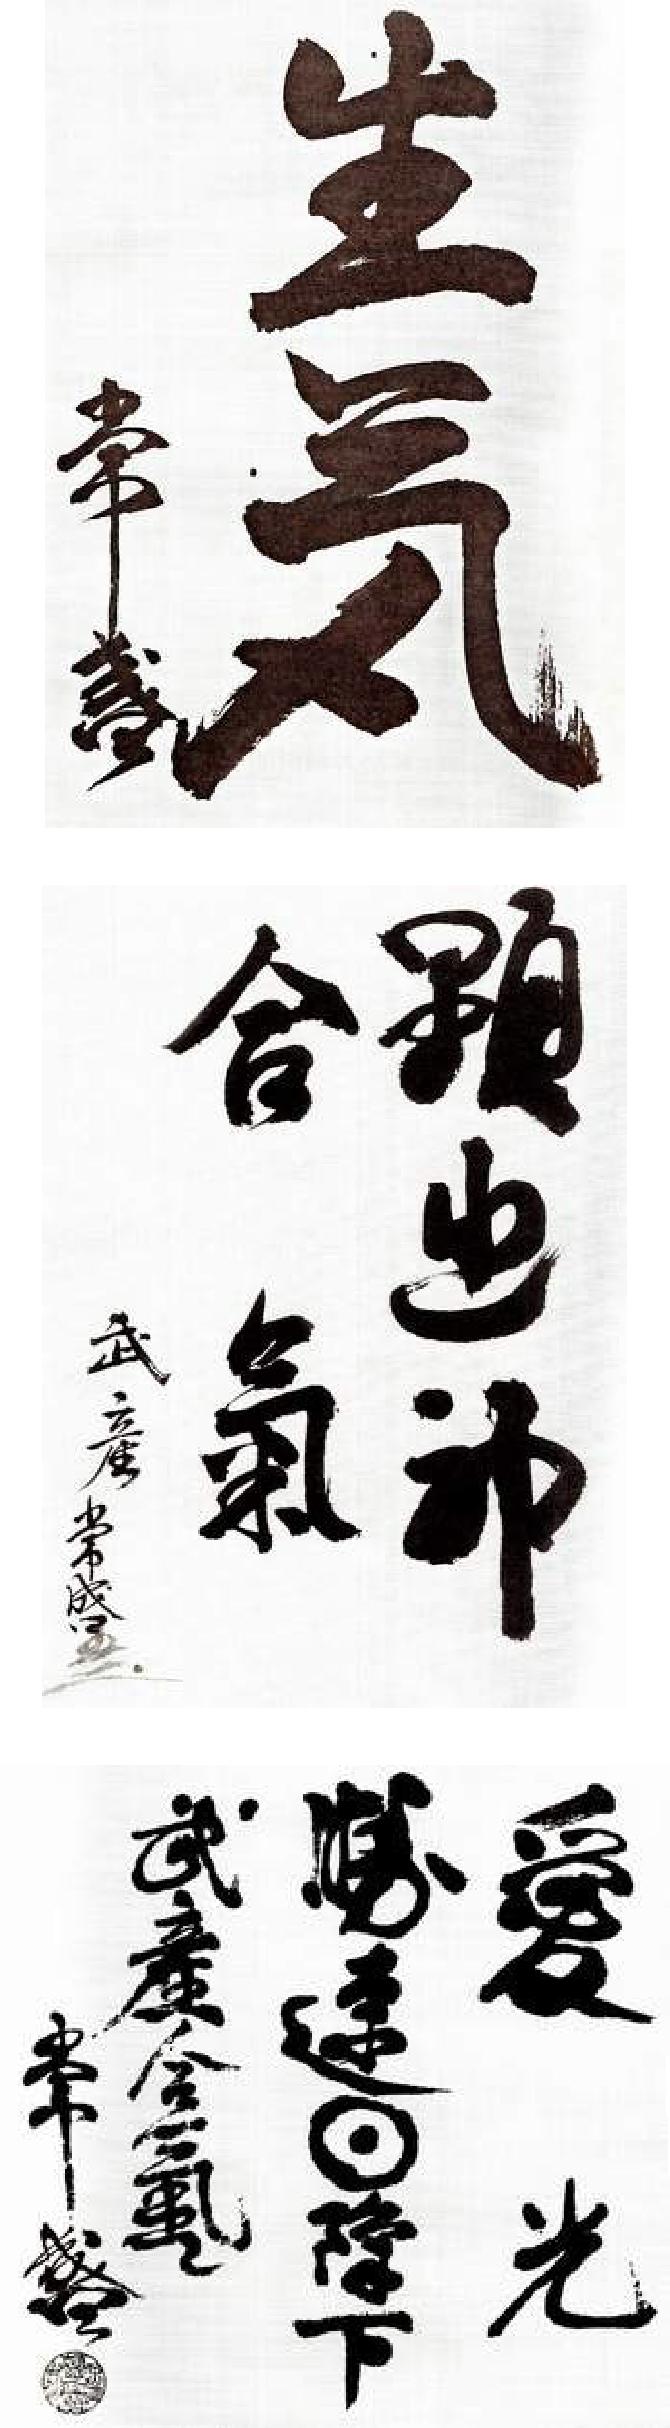 生気
常盛
顕神
合氣
武産常盛
愛光
勝速日降下
武産合氣
常盛